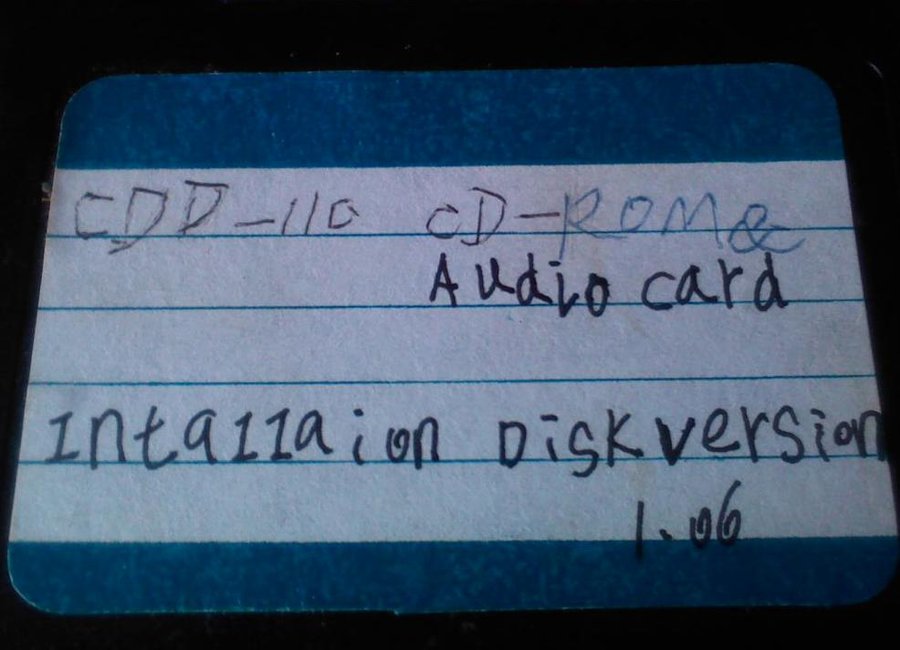 CDD-110 CD-ROM &
Audio card
Intallaion Diskversion
1.06